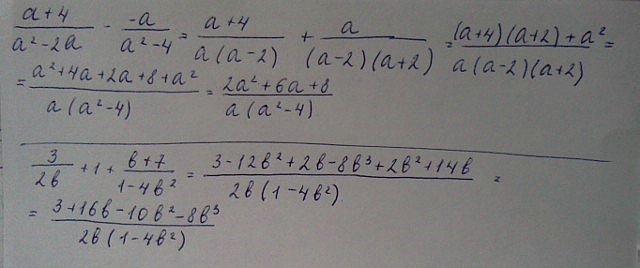 (a+4)/(a²-2a) - (-a)/(a²-4) = (a+4)/(a(a-2)) + a/((a-2)(a+2)) = ((a+4)(a+2)+a²)/(a(a-2)(a+2)) =
= (a²+4a+2a+8+a²)/(a(a²-4)) = (2a²+6a+8)/(a(a²-4))
3/(2b) + 1 + (b+7)/(1-4b²) = (3-12b²+2b-8b³+2b²+14b)/(2b(1-4b²)) =
= (3+16b-10b²-8b³)/(2b(1-4b²))